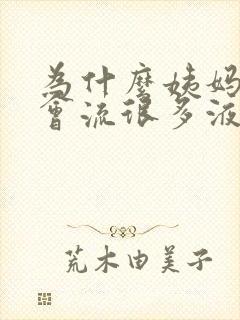 为什麽姨妈
会流很多液
荒木由美子